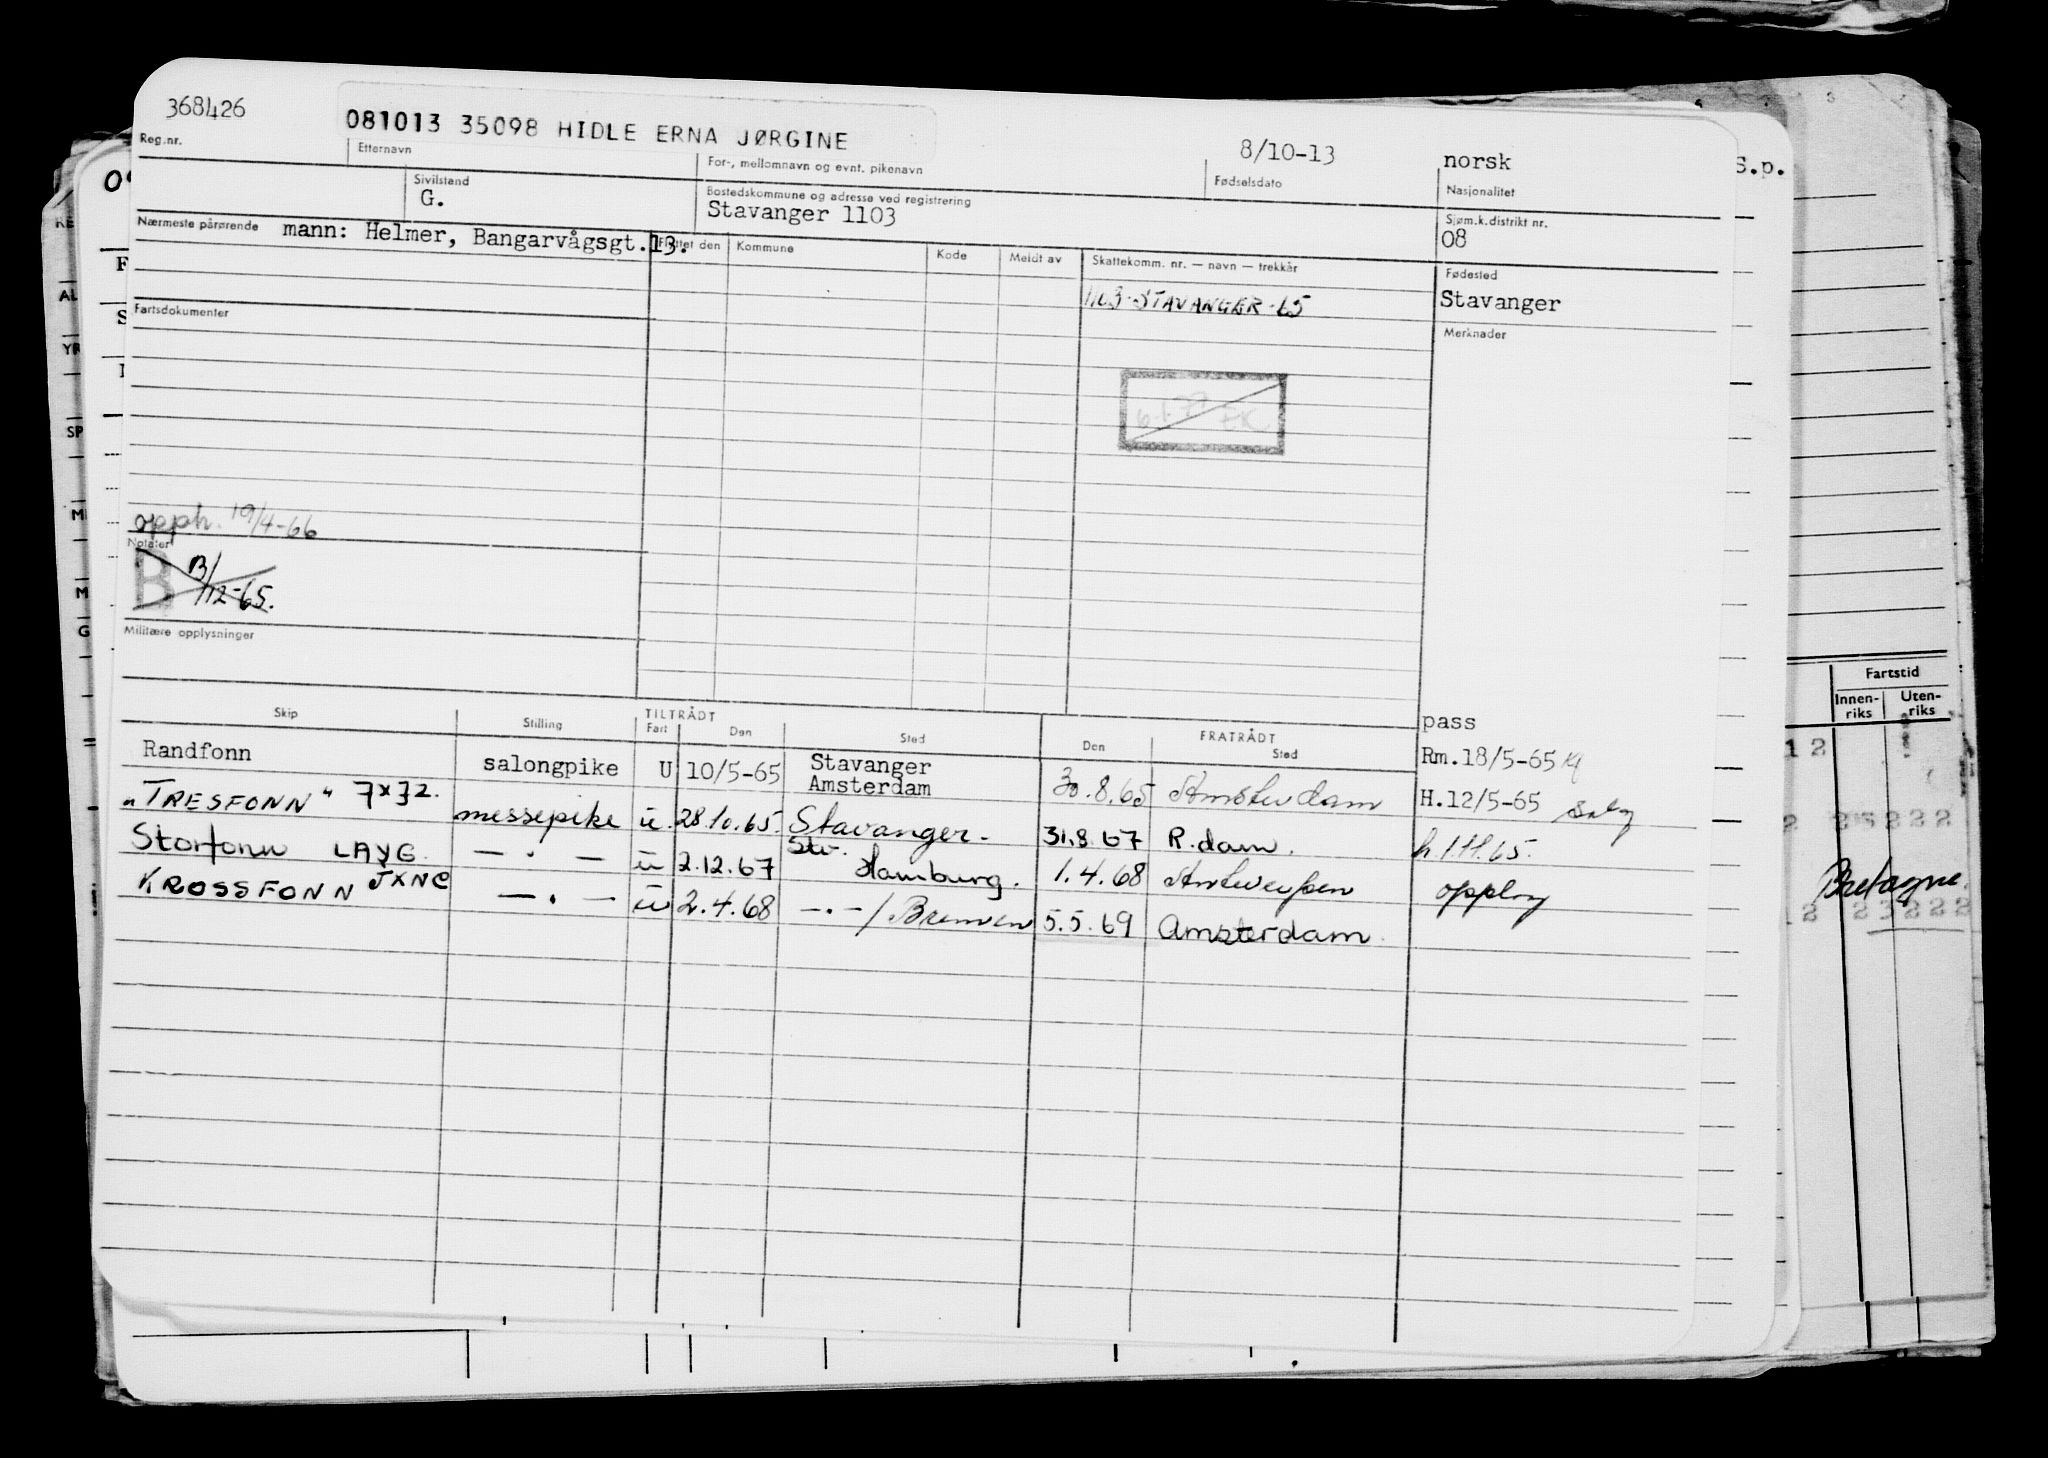 368426
081013 35098 HIDLE ERNA JØRGINE
8/10-13
norsk
S.p.
Reg.nr.
Etternavn
For-, mellomnavn og evnt. pikenavn
Fødselsdato
Nasjonalitet
Sivilstand
G.
Bostedskommune og adresse ved registrering
Stavanger 1103
Sjøm.k.distrikt nr.
08
Nærmeste pårørende mann: Helmer, Bangarvågsgt.13.
Flyttet den Kommune Kode Meldt av Skattekomm. nr. — navn — trekkår
Fødested
Stavanger
1103-STAVANGER-65
Merknader
Fartsdokumenter
6-1-77 EK
opph. 19/4-66
Notater
B B/12-65.
Militære opplysninger
Fartstid
Innen-riks Uten-riks
Skip Stilling TILTRÅDT Fart Den Sted FRATRÅDT Den Sted
pass
Randfonn salongpike U 10/5-65 Stavanger Amsterdam 30.8.65 Amsterdam Rm.18/5-65
"TRESFONN" JXJZ. messepike u. 28.10.65. Stavanger. 31.8.67 R.dam. H.12/5-65
Storfonn LAYG — " — u 2.12.67 Stv. Hamburg. 1.4.68 Antwerpen h.1.11.65.
KROSSFONN JXNC — " — u 2.4.68 —"—/Bremen 5.5.69 Amsterdam.
Bretagne.